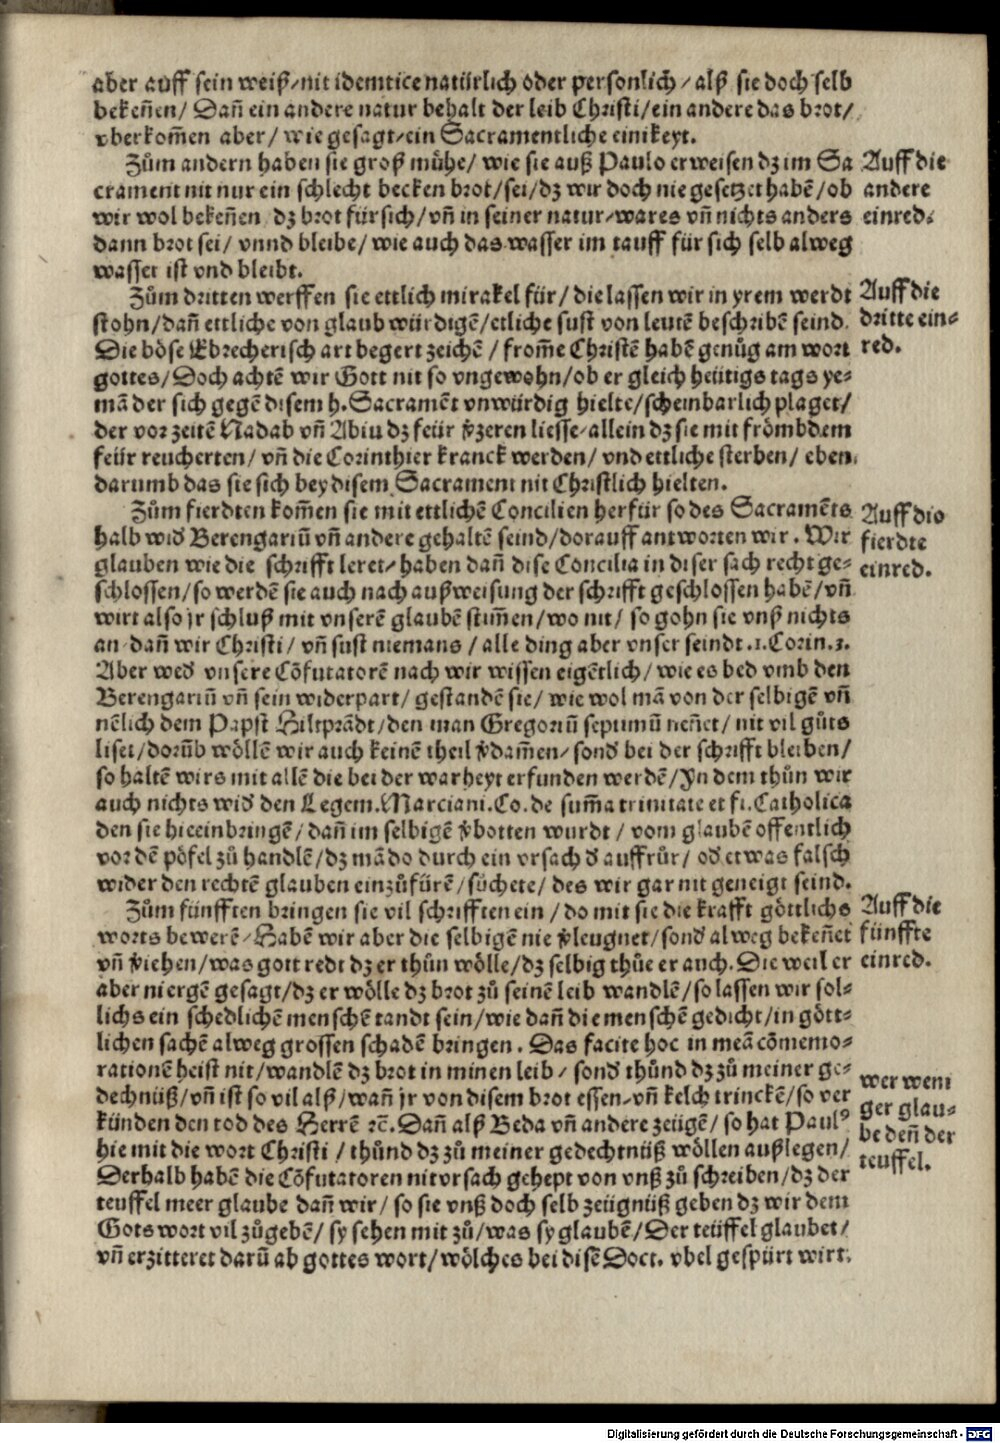 aber auff sein weiß/nit idemtice natürlich oder personlich/alß sie doch selb
bekeñen/ Dañ ein andere natur behalt der leib Christi/ein andere das brot/
vberkom̃en aber/ wie gesagt/ein Sacramentliche einikeyt.
Zům andern haben sie groß mühe/ wie sie auß Paulo erweisen dz im Sa
crament nit nur ein schlecht becken brot/sei/dz wir doch nie gesetzet habẽ/ob
wir wol bekeñen dz brot für sich/vñ in seiner natur/wares vñ nichts anders
dann brot sei/ vnnd bleibe/wie auch das wasser im tauff für sich selb alweg
wasser ist vnd bleibt.
Auff die
andere
einred.
Zům dritten werffen sie ettlich mirakel für/die lassen wir in yrem werdt
stohn/dañ ettliche von glaub würdigẽ/etliche sust von leutẽ beschribẽ seind.
Die böse Ebrecherisch art begert zeichẽ/ from̃e Christẽ habẽ genůg am wort
gottes/Doch achtẽ wir Gott nit so vngewohn/ob er gleich heütigs tags ye⸗
mã der sich gegẽ disem h. Sacramẽt vnwürdig hielte/scheinbarlich plaget/
der vor zeitẽ Nadab vñ Abiu dz feür v̾zeren liesse/allein dz sie mit frömbdem
feür reucherten/ vñ die Corinthier kranck werden/ vnd ettliche sterben/ eben
darumb das sie sich bey disem Sacrament nit Christlich hielten.
Auff die
dritte ein⸗
red.
Zům fierdten kom̃en sie mit ettlichẽ Concilien herfür so des Sacramẽts
halb wid̾ Berengariũ vñ andere gehaltẽ seind/dorauff antworten wir. Wir
glauben wie die schrifft leret/haben dañ dise Concilia in diser sach recht ge⸗
schlossen/so werdẽ sie auch nach außweisung der schrifft geschlossen habẽ/vñ
wirt also jr schluß mit vnserẽ glaubẽ stim̃en/wo nit/ so gohn sie vnß nichts
an dañ wir Christi/ vñ sust niemans/ alle ding aber vnser seindt .1. Corin. 3.
Aber wed̾ vnsere Cõfutatorẽ nach wir wissen eigẽtlich/wie es bed vmb den
Berengariũ vñ sein widerpart/ gestandẽ sie/ wie wol mã von der selbigẽ vñ
nẽlich dem Papst Hiltprãdt/den man Gregoriũ septimũ neñet/ nit vil gůts
liset/dorũb wöllẽ wir auch keinẽ theil v̾dam̃en/sond̾ bei der schrifft bleiben/
so haltẽ wirs mit allẽ die bei der warheyt erfunden werdẽ/Jn dem thůn wir
auch nichts wid̾ den Legem. Marciani. Co. de sum̃a trinitate et fi. Catholica
den sie hieeinbringẽ/dañ im selbigẽ v̾botten wurdt/ vom glaubẽ offentlich
vor dẽ pöfel zů handlẽ/dz mã do durch ein vrsach d̾ auffrür/ od̾ etwas falsch
wider den rechtẽ glauben einzůfürẽ/süchete/ des wir gar nit geneigt seind.
Auff die
fierdte
einred.
Zům fünfften bringen sie vil schrifften ein/do mit sie die krafft göttlichs
worts bewerẽ/Habẽ wir aber die selbigẽ nie v̾leugnet/sond̾ alweg bekeñet
vñ v̾iehen/was gott redt dz er thůn wölle/dz selbig thůe er auch. Die weil er
aber niergẽ gesagt/dz er wölle dz brot zů seinẽ leib wandlẽ/so lassen wir sol⸗
lichs ein schedlichẽ menschẽ tandt sein/wie dañ die menschẽ gedicht/in gött⸗
lichen sachẽ alweg grossen schadẽ bringen. Das facite hoc in meã cõmemo⸗
rationẽ heist nit/wandlẽ dz brot in minen leib/ sond̾ thůnd dz zů meiner ge⸗
dechnüß/vñ ist so vil alß/wañ jr von disem brot essen/vñ kelch trinckẽ/so ver
künden den tod des Herrẽ ꝛc̃. Dañ alß Beda vñ andere zeügẽ/ so hat Paulꝰ
hie mit die wort Christi/ thůnd dz zů meiner gedechtnüß wöllen außlegen/
Derhalb habẽ die Cõfutatoren nit vrsach gehept von vnß zů schreiben/dz der
teuffel meer glaube dañ wir/ so sie vnß doch selb zeügnüß geben dz wir dem
Gots wort vil zůgebẽ/ sy sehen mit zů/was sy glaubẽ/Der teüffel glaubet/
vñ erzitteret darũ ab gottes wort/wölches bei disẽ Doct. vbel gespürt wirt.
Auff die
fünffte
einred.
wer weni
ger glau⸗
be deñ der
teuffel.
Digitalisierung gefördert durch die Deutsche Forschungsgemeinschaft - DFG